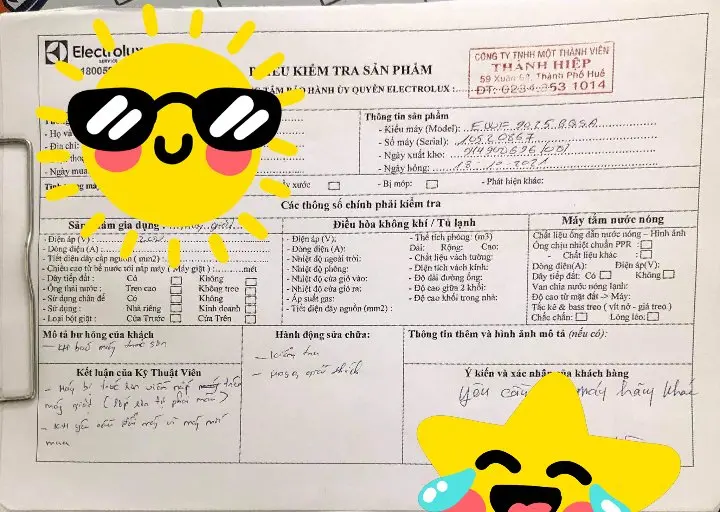 Electrolux
SERVICE
KIỂM TRA SẢN PHẨM
BẢO HÀNH ỦY QUYỀN ELECTROLUX :
CÔNG TY TNHH MỘT THÀNH VIÊN
THÀNH HIỆP
59 Xuân 68, Thành Phố Huế
ĐT: 0234.353 1014
- Họ và
- Địa chỉ:
- Ngày mua
Thông tin sản phẩm
- Kiểu máy (Model): EWF 9025 BQSA
- Số máy (Serial): 10520867
- Ngày xuất kho: 914900696/00
- Ngày hỏng: 13 - 10 - 2021
xước
- Bị móp:
- Phát hiện khác:
Các thông số chính phải kiểm tra
gia dụng
giặt
- Điện áp (V):
- Dòng điện (A)
- Tiết diện dây cấp nguồn (mm2) :
- Chiều cao từ bể nước tới nắp máy ( Máy giặt ) :
mét
- Dây tiếp đất: Có Không
- Ống thải nước : Treo cao Không treo
- Sử dụng chân đế Có Không
- Sử dụng : Nhà riêng Kinh doanh
- Loại bột giặt : Cửa Trước Cửa Trên
Điều hòa không khí / Tủ lạnh
- Điện áp (V):
- Dòng điện (A):
Nhiệt độ ngoài trời:
- Nhiệt độ phòng:
- Nhiệt độ cửa gió vào:
- Nhiệt độ cửa gió ra:
- Áp suất gas:
- Tiết diện dây nguồn (mm2) :
- Thể tích phòng: (m3)
Dài: Rộng: Cao:
- Chất liệu vách tường:
- Diện tích vách kính:
- Độ dài đường ống:
- Độ cao giữa 2 khối:
- Độ cao khối trong nhà:
Máy tắm nước nóng
Chất liệu ống dẫn nước nóng – Hình ảnh
Ống chịu nhiệt chuẩn PPR :
- Chất liệu khác:
Dòng điện(A): Điện áp(V):
Dây tiếp đất: Có Không
Van chia nước nóng lạnh:
Độ cao từ mặt đất -> Máy:
Tắc kê & bass treo ( vít nở - giá treo )
Chắc chắn: Lỏng lẻo:
Mô tả hư hỏng của khách
- KH báo máy tróc sơn
Kết luận của Kỹ Thuật Viên
- Máy bị tróc sơn viền nắp trên
máy giặt
- KH yêu cầu đổi máy vì máy mới
mua
Hành động sửa chữa:
- Kiểm tra
- giải thích
Thông tin thêm và hình ảnh mô tả (nếu có):
Ý kiến và xác nhận của khách hàng
yêu cầu máy hãng khác